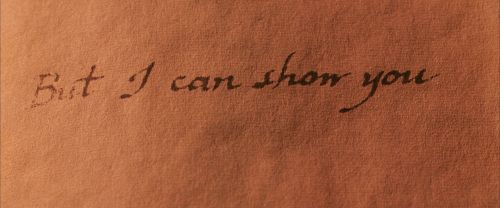 But I can show you